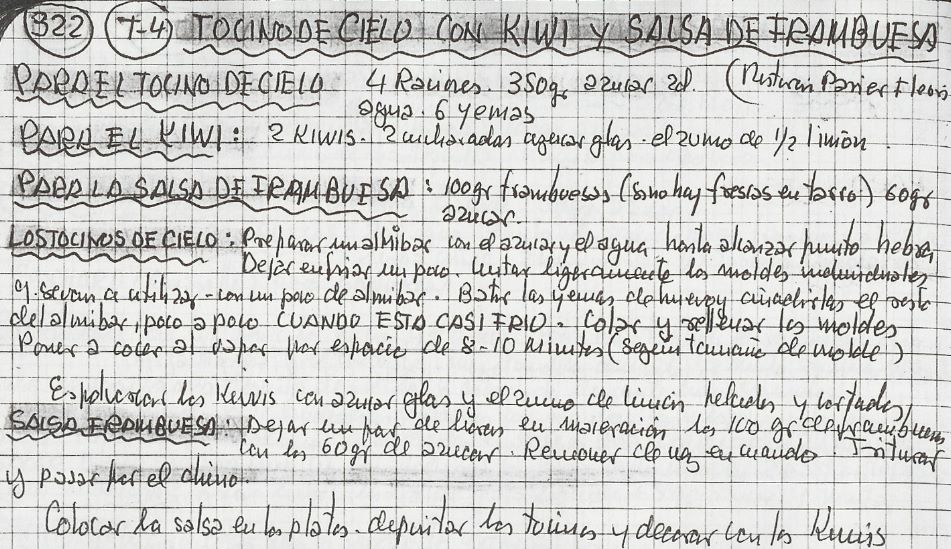 322 T-4 TOCINO DE CIELO CON KIWI Y SALSA DE FRAMBUESA
PARA EL TOCINO DE CIELO 4 Raciones. 350gr azucar 2dl (
agua. 6 yemas
PARA EL KIWI: 2 KIWIS. 2 cucharadas azucar glas. el zumo de 1/2 limón
PARA LA SALSA DE FRAMBUESA: 100gr frambuesas (si no hay fresas en tarro) 60gr
azucar.
LOS TOCINOS DE CIELO: Preparar un almibar con el azucar y el agua, hasta alcanzar punto hebra,
Dejar enfriar un poco. Untar ligeramente los moldes individuales
q. se van a utilizar - con un poco de almibar. Batir las yemas de huevo y añadirlas el resto
del almibar, poco a poco CUANDO ESTA CASI FRIO. Colar y rellenar los moldes
Poner a cocer al vapor por espacio de 8-10 minutos (según tamaño de molde)
Espolvorear los Kiwis con azucar glas y el zumo de limón helados y cortados
SALSA FRAMBUESA: Dejar un par de horas en maceración los 100 gr de frambuesa
con los 60gr de azucar. Remover de vez en cuando. Triturar
y pasar por el chino.
Colocar la salsa en los platos. depositar los tocinos y decorar con los Kiwis